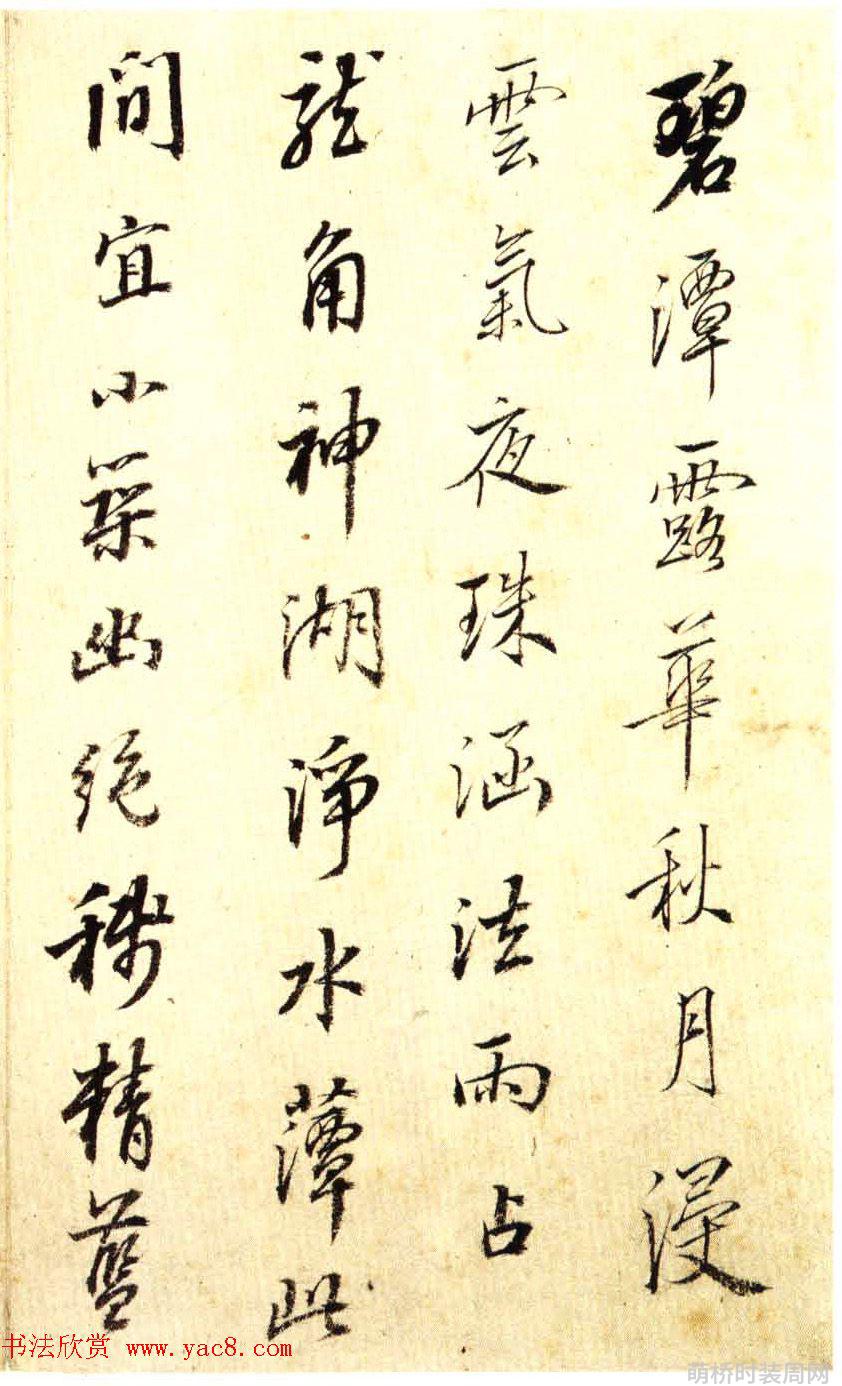 碧潭露華秋月浸
雲氣夜珠涵法雨占
龍角神湖淨水藫此
間宜小築幽絕稱精藍
书法欣赏 www.yac8.com
萌桥时装周网